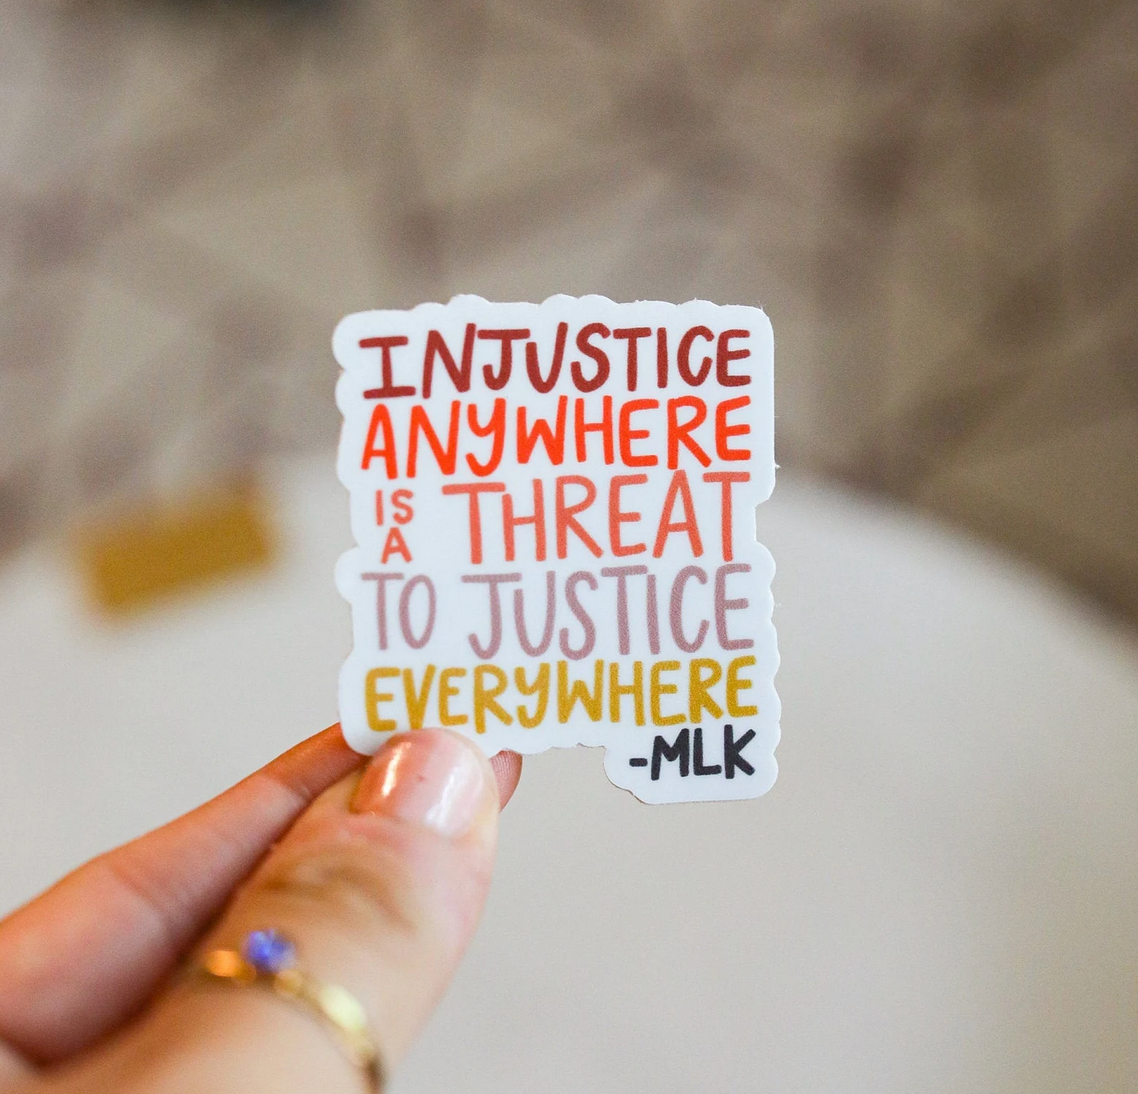 INJUSTICE
ANYWHERE
IS A THREAT
TO JUSTICE
EVERYWHERE
-MLK